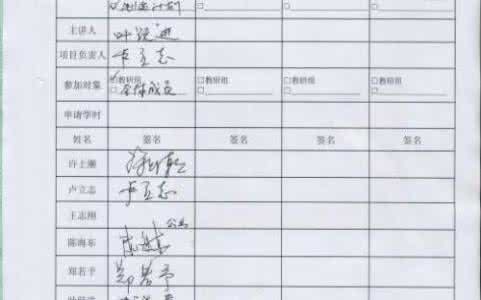 制定计划
□ □ □
主讲人 叶锐进
项目负责人 卢立志
参加对象 ☑教研组 □教研组 □教研组 □教研组
□全体成员 □ □ □
申请学时
姓名 签名 签名 签名 签名
许上
卢立志 卢立志
王志刚 公出
陈海东 陈海东
郑若予 郑若予